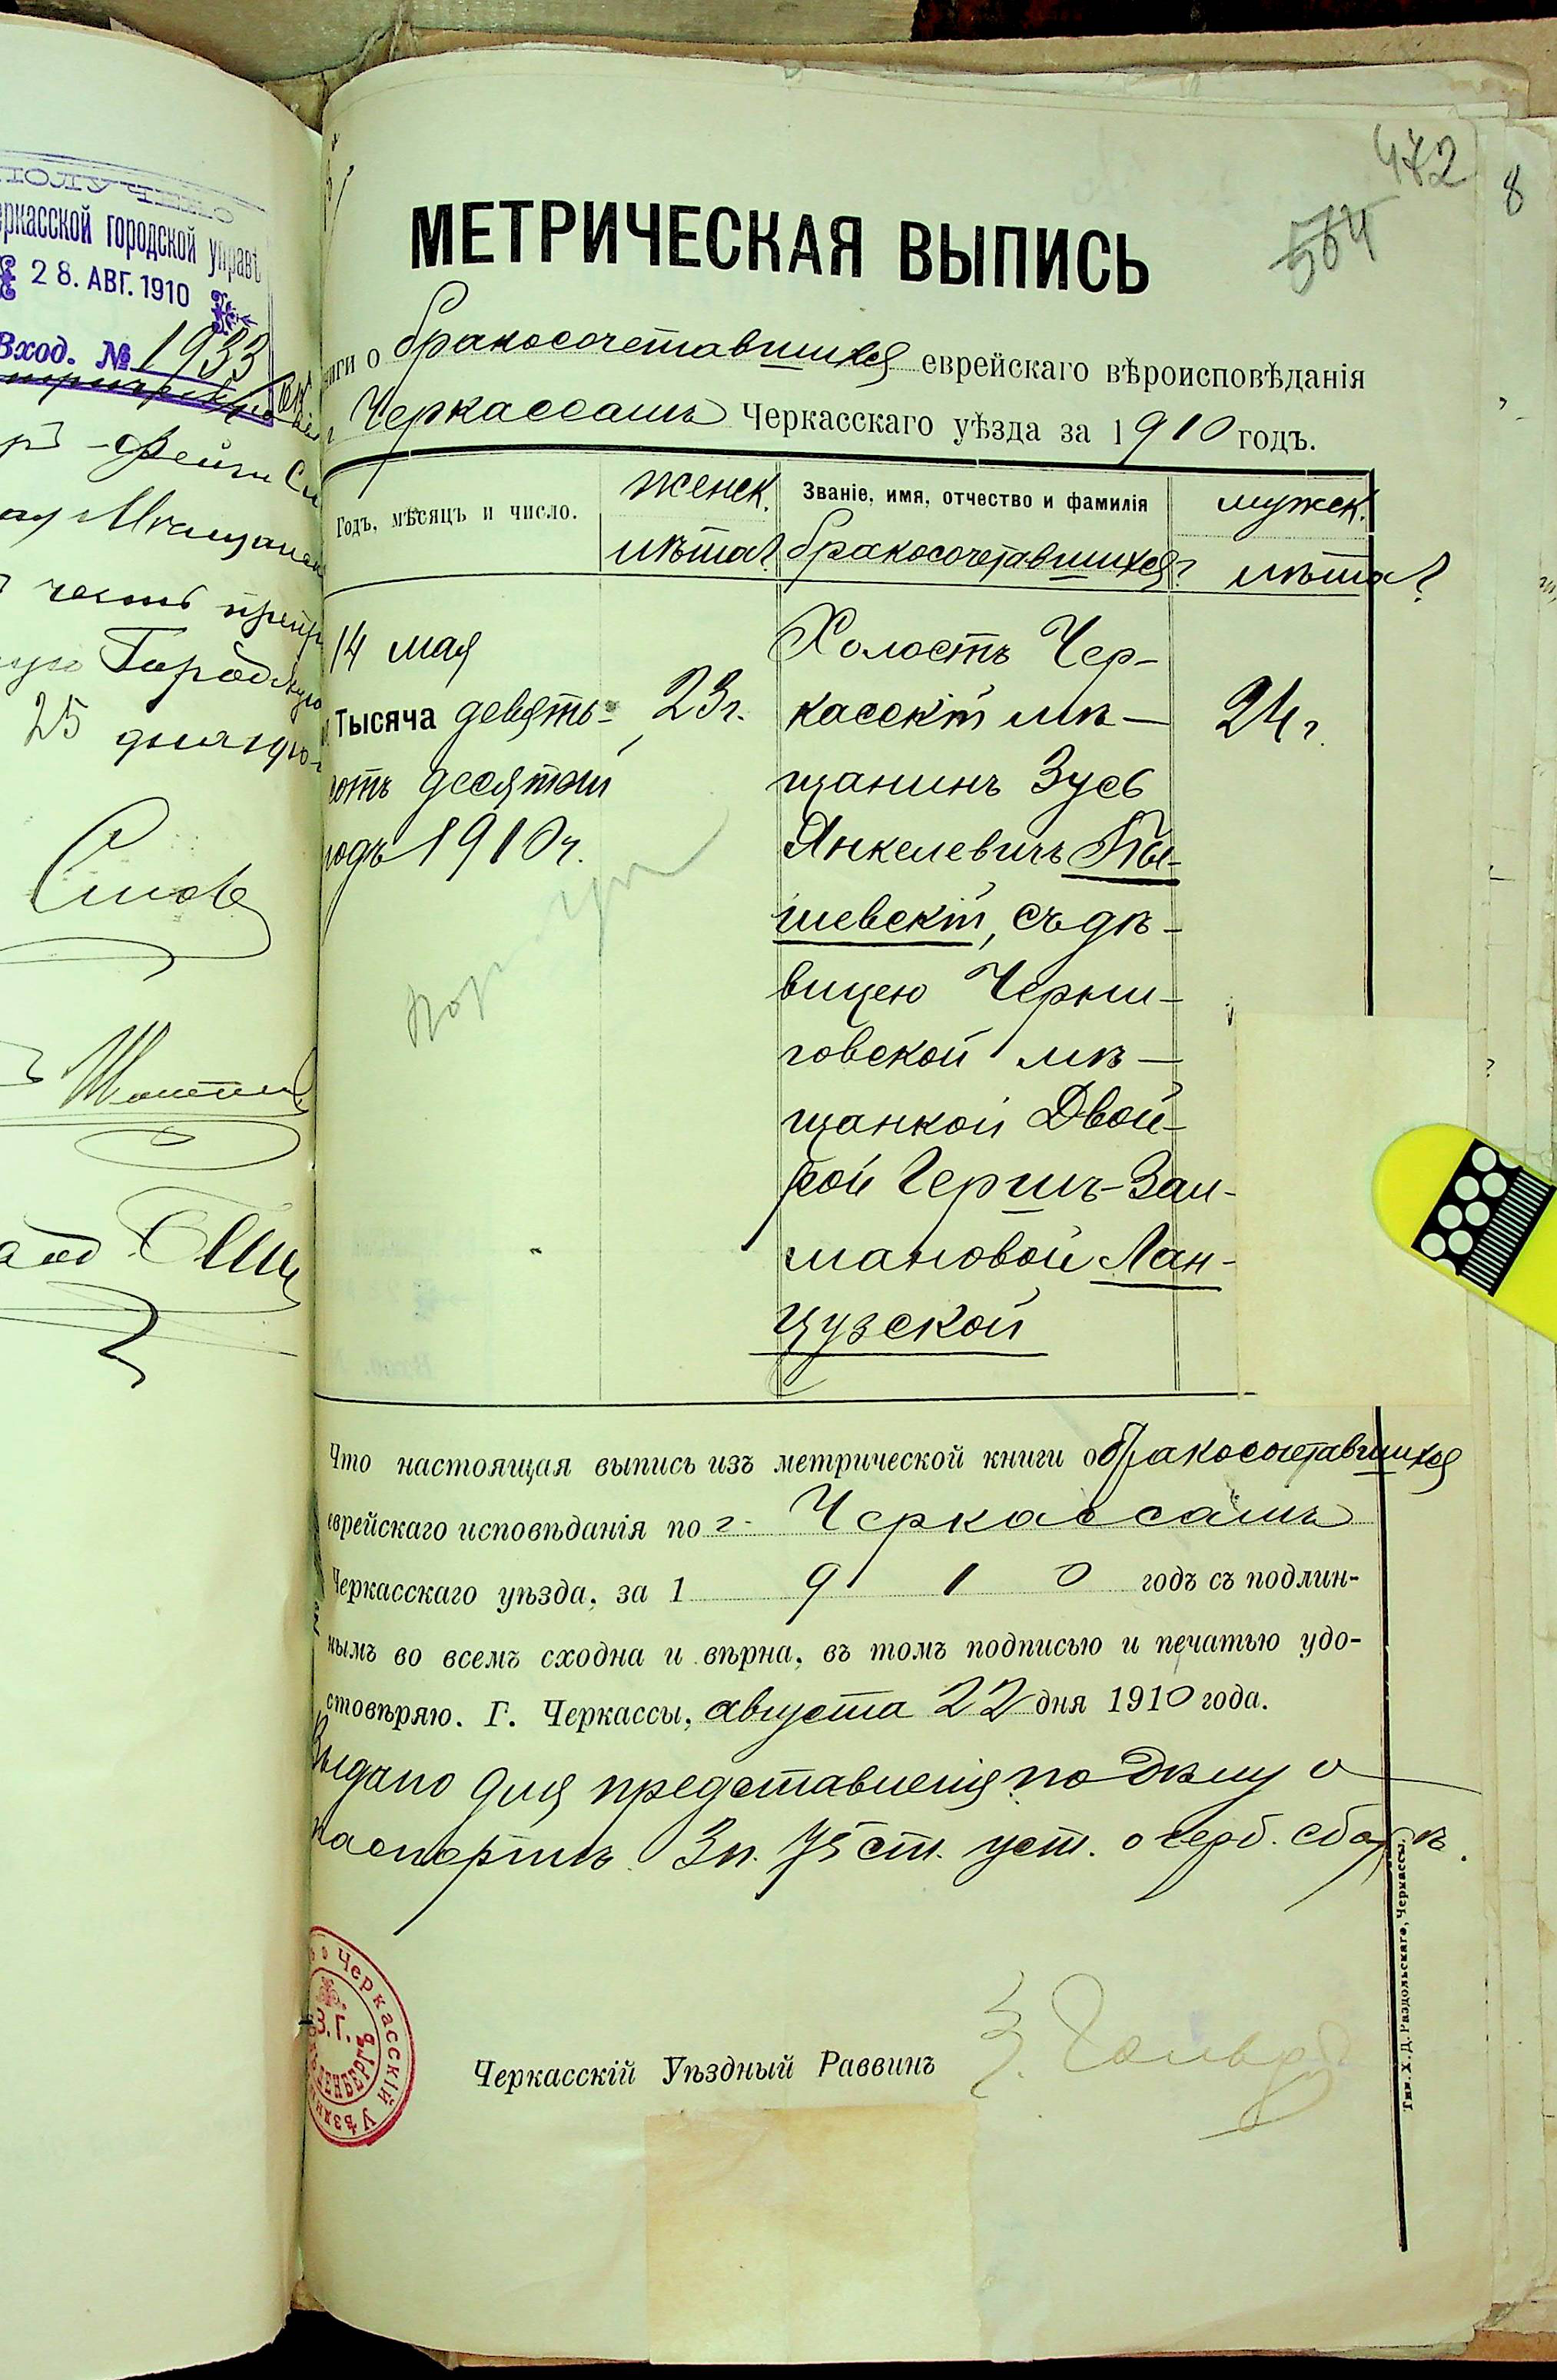 еркасской городской управѣ
28. АВГ. 1910
Вход. № 1933
25
472
564
8
МЕТРИЧЕСКАЯ ВЫПИСЬ
ниги о бракосочетавшихся еврейскаго вѣроисповѣданія
г Черкассамъ Черкасскаго уѣзда за 1910 годъ.
Годъ, мѣсяцъ и число.
женск.
лѣта?
Званіе, имя, отчество и фамилія
бракосочетавшихся?
мужск.
лѣта?
14 мая
Тысяча девять-
сотъ десятый
годъ 1910 г.
23 г.
Холостъ Чер-
касскій мѣ-
щанинъ Зусь
Янкелевичъ Кы-
шевскій, съ дѣ-
вицею Черни-
говской мѣ-
щанкой Двой-
рой Гершъ-Зал-
мановой Лан-
цузской
24 г.
Что настоящая выпись изъ метрической книги о бракосочетавшихся
еврейскаго исповѣданія по г. Черкассамъ
Черкасскаго уѣзда, за 1910 годъ съ подлин-
нымъ во всемъ сходна и вѣрна, въ томъ подписью и печатью удо-
стовѣряю. Г. Черкассы, августа 22 дня 1910 года.
Выдано для представленія по дѣлу о
паспортѣ. 3 п. 75 ст. уст. о герб. сборѣ.
Черкасскій Уѣздный Раввинъ
Черкасскій Уѣздн
З.Г.
ЕНБЕРГЪ
Тип. Х. Д. Раздольскаго, Черкассы.